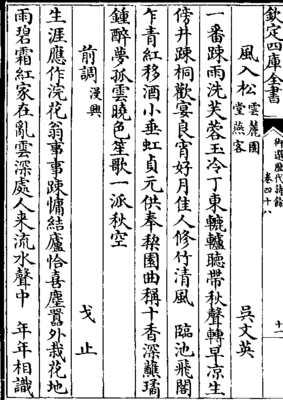 欽定四庫全書
御選歷代詩餘
卷四十八
十一
風入松 雲麓園
堂燕客
吳文英
一番踈雨洗芙蓉玉冷丁東轆轤聽帶秋聲轉早凉生
傍井踈桐歡宴良宵好月佳人修竹清風 臨池飛閣
乍青紅移酒小垂虹貞元供奉棃園曲稱十香深蘸瓊
鍾醉夢孤雲曉色笙歌一派秋空
前調 漫興
戈止
生涯應作浣花翁事事踈慵結廬恰喜塵嚣外栽花地
雨碧霜紅家在亂雲深處人来流水聲中 年年相識